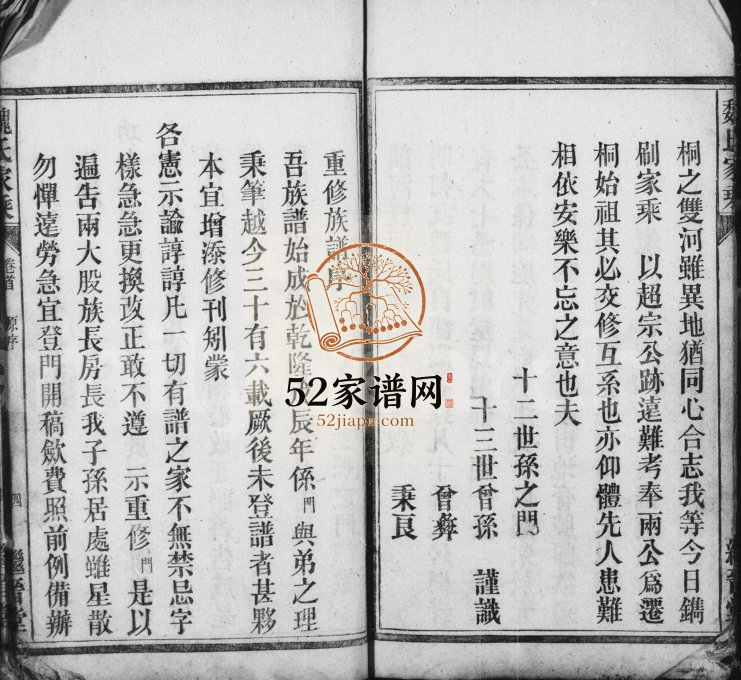 桐之雙河雖異地猶同心合志我等今日鐫
刷家乘　以超宗公跡遠難考奉兩公爲遷
桐始祖其必交修互系也亦仰體先人患難
相依安樂不忘之意也夫
十二世孫之門
十三世曾孫　謹識
曾彝
秉良
重修族譜序
吾族譜始成於乾隆 辰年係門與弟之理
秉筆越今三十有六載厥後未登譜者甚夥
本宜增添修刊矧蒙
各憲示諭諄諄凡一切有譜之家不無禁忌字
樣急急更換改正敢不遵　示重修門是以
遍告兩大股族長房長我子孫居處雖星散
勿憚遠勞急宜登門開稿歛費照前例備辦
魏氏家乘
卷首
原序
四
52家谱网
52jiapu.com